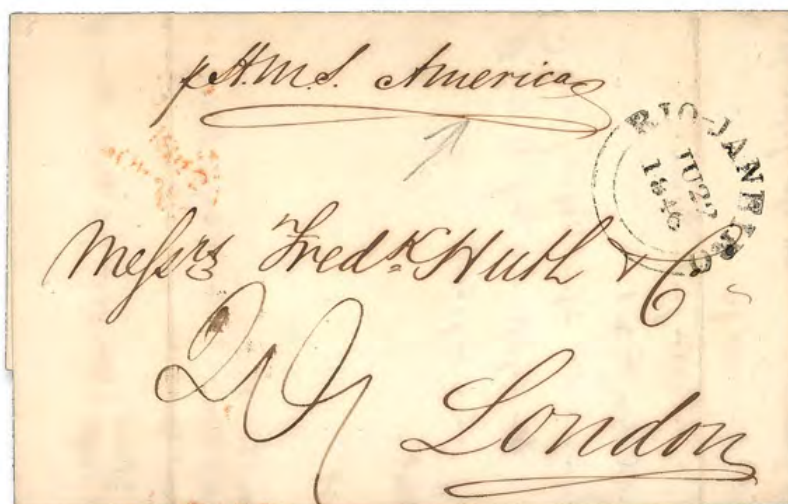 p H.M.S. America
RIO-JANEIRO
JU22
1846
Messrs Fredk Huth & Co
2/9
London